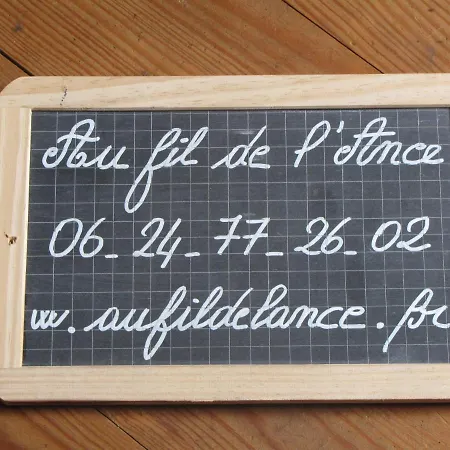 Au fil de l'Ance
06_24_77_26_02
www.aufildelance.fr